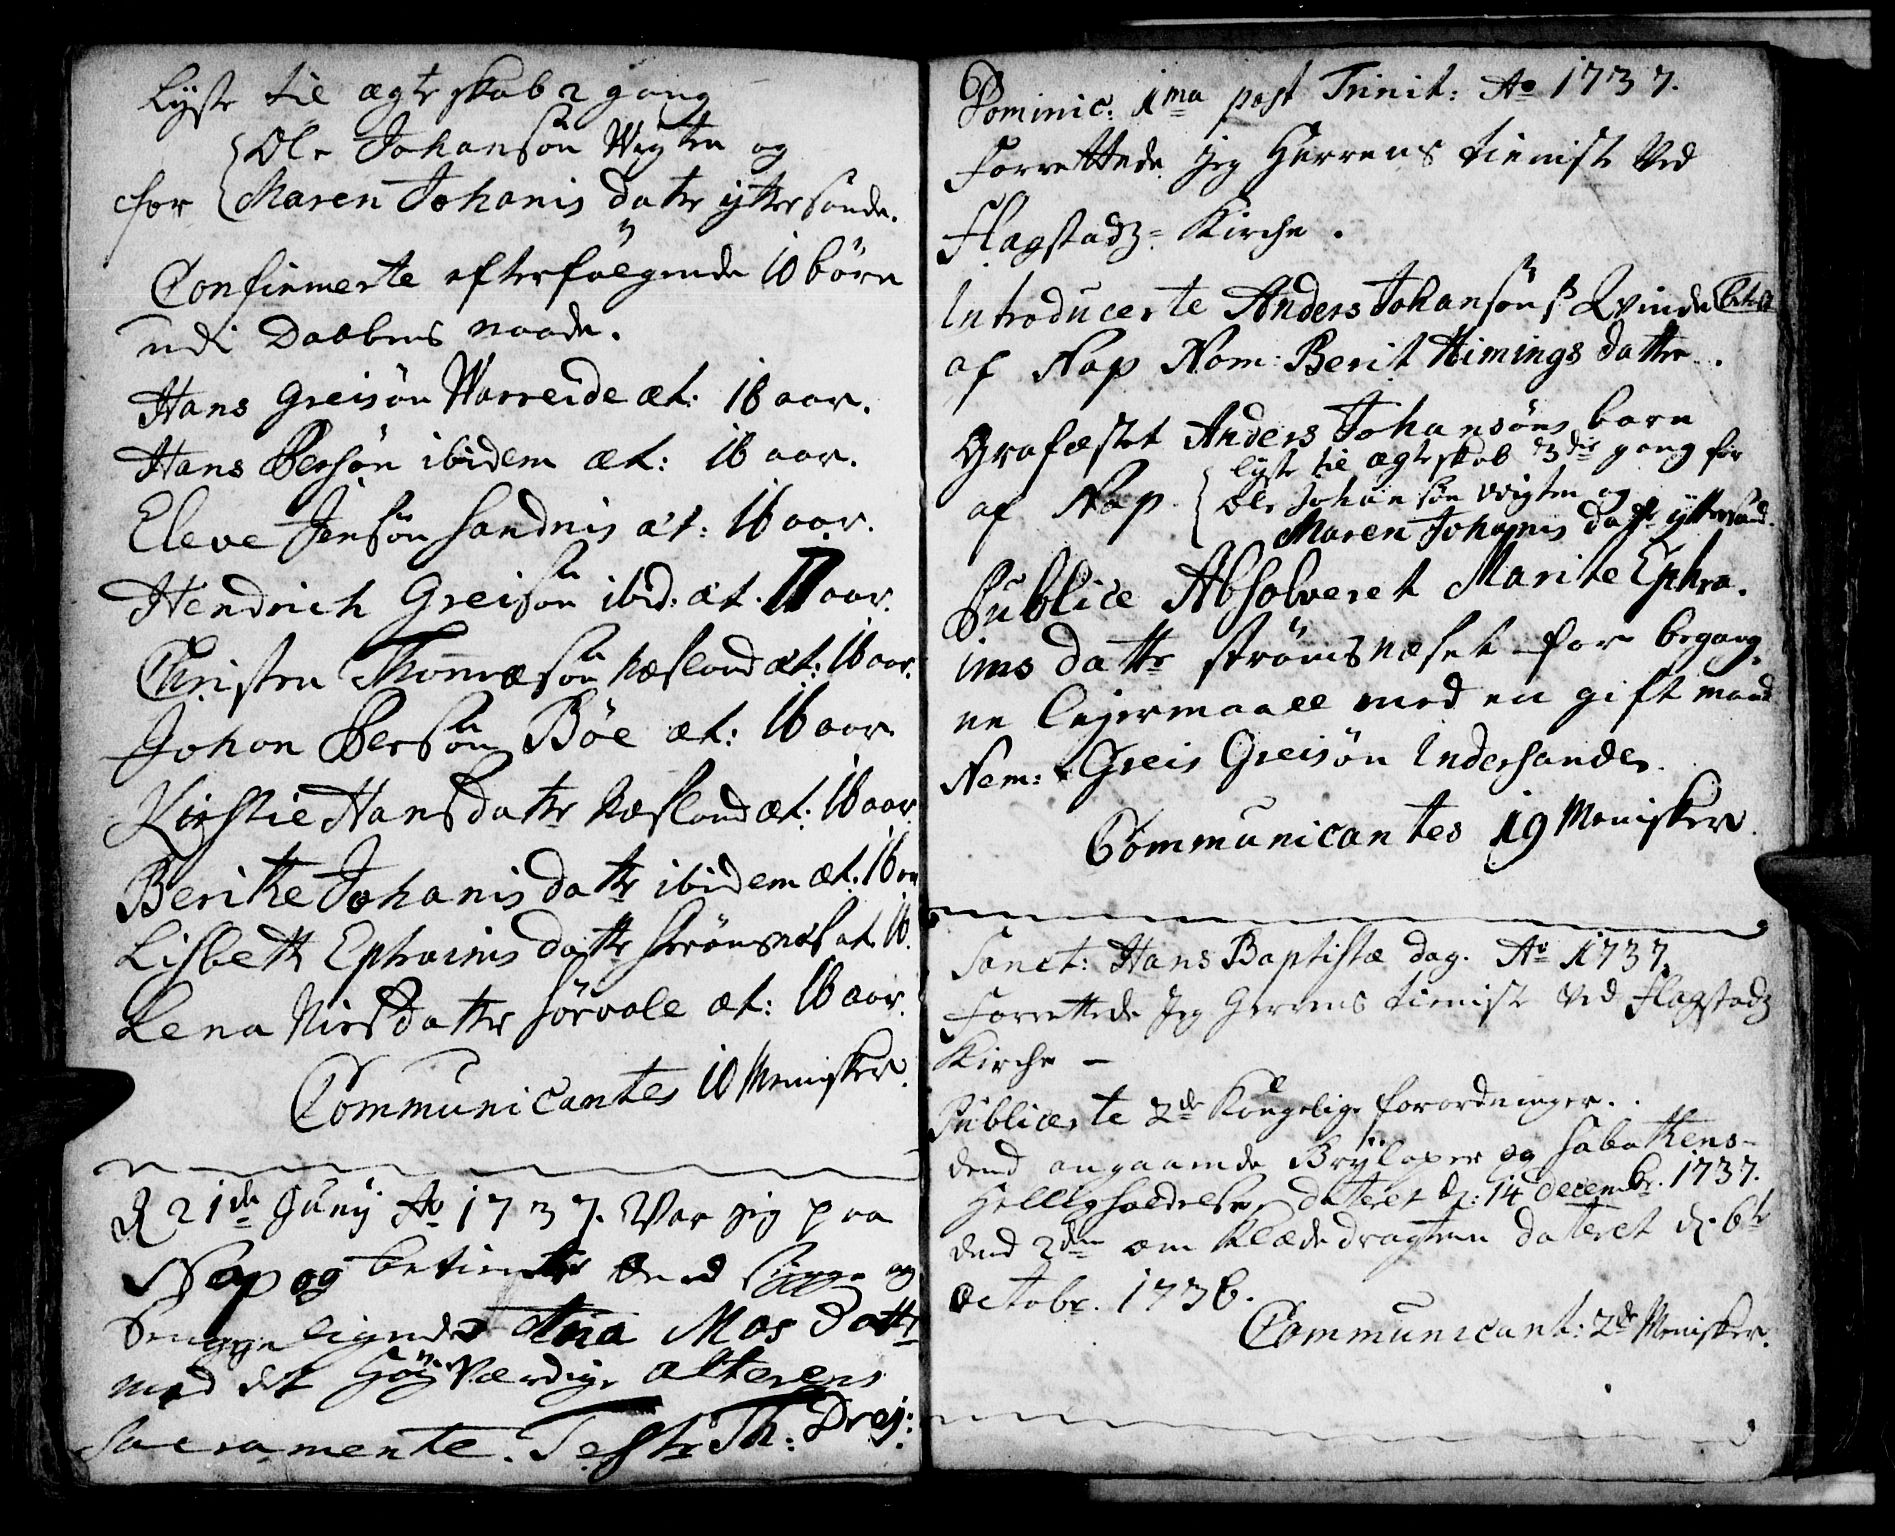 Lyste til ægteskab 2 gang
Ole Johansøn Wigten og
for Maren Johanis datter yttersande.
Confirmerte efterfølgende 10 børn
udi Daabens naade.
Hans Greisøn Warreide æt: 16 aar.
Hans Persøn ibidem æt: 16 aar.
Eleve Jensøn Sandnis æt: 16 aar.
Hendrich Greisøn ibid: æt. 17 aar.
Christen Thomæsøn Næsland æt: 16 aar.
Johan Persøn Böe æt: 16 aar.
Kirstie Hansdatter Næsland æt: 16 aar.
Beritte Johanis datter ibidem æt. 16
Lisbeth Ephraims datter Strömsnæs æt 16.
Lena Nirsdatter Sörvale æt: 16 aar.
Communicantes 10 Menisker.
D 21de Junij Ao 1737. Var jeg paa
Nap og betiente dend siuge og
Sengeliggende Mas datter
med det höyværdige alterens
sacramente. Teste Th: Drej:
Dominic: 1ma post Trinit: Ao 1737.
Forrettede jeg Herrens tieniste ved
Flagstadz= Kirche.
Introducerte Anders Johansøns Qvinde
af Nap Nom: Berit Himings datter.
Grafæstet Anders Johansøns barn
af Nap.
Lyste til ægteskab 3die gang for
Ole Johansøn Wigten og
Maren Johanis datter yttersand.
Publice Absolveret Marite Ephra-
ims datter Strömsnæset for begang-
ne Lejermaall med en gift mand
Nem: Greis Greisøn Indersander.
Communicantes 19 Menisker.
Sanct: Hans Baptistæ dag. Ao 1737.
Forrettede jeg Herrens tieniste ved Flagstadz
Kirche —
Publicerte 2de Kongelige forordninger.
dend angaaende Bryloper og Sabathens-
Helligholdelse dateret d: 14 decembr. 1737.
dend 2den om Klædedragten dateret d. 6te
octobr. 1736.
Communicant: 2de Menisker.